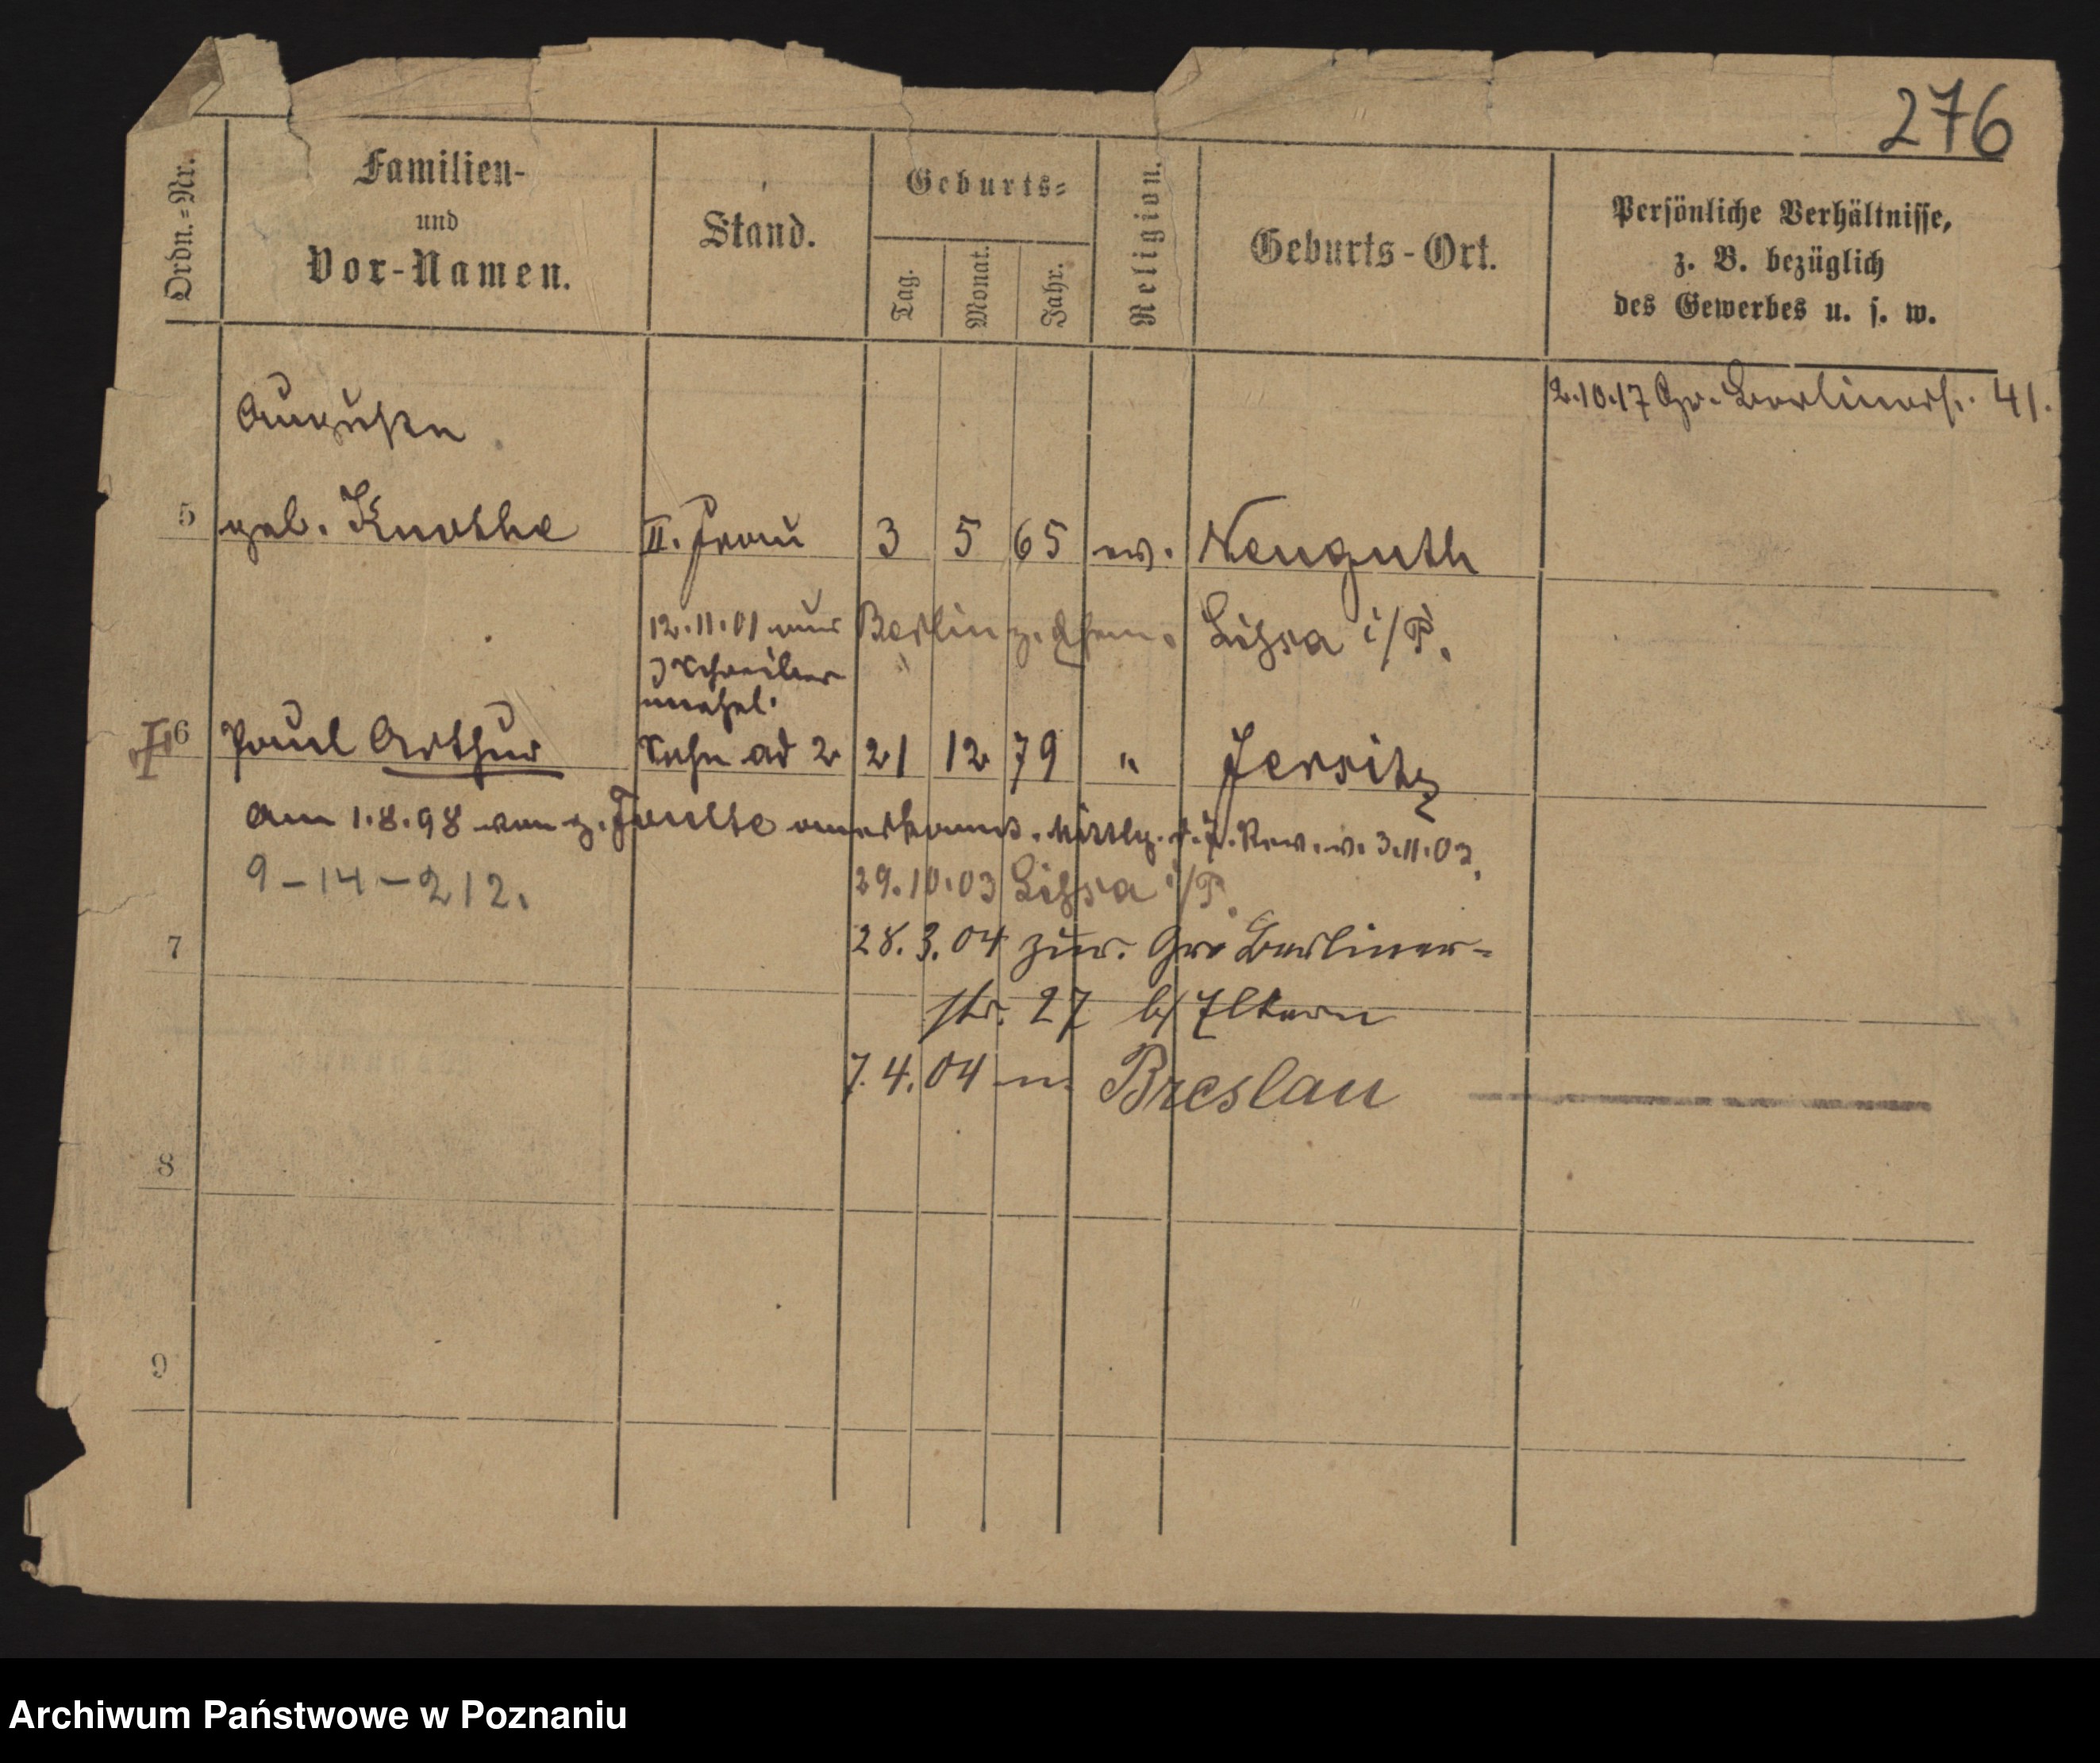 276
Ordn.=Nr.
Familien-
und
Vor-Namen.
Stand.
Geburts=
Tag.
Monat.
Jahr.
Religion.
Geburts-Ort.
Persönliche Verhältnisse,
z. B. bezüglich
des Gewerbes u. s. w.
2.10.17 Gr. Berlinerst. 41.
Auguste
5 geb. Knothe II. Frau 3 5 65 ev. Neuguth
12.11.01 aus Berlin z. Lissa i/P.
Schreiber
unehel.
6 Paul Arthur Sohn ad 2 21 12 79 " Jersitz
Am 1.8.98 von z. anerkannt. Mittlg. d. Rev. v. 3.11.03.
9-14-212. 29.10.03 Lissa i/P.
7 28.3.04 zur. Gr. Berliner-
str. 27 b/ Eltern
7.4.04 n. Breslau
8
9
Archiwum Państwowe w Poznaniu